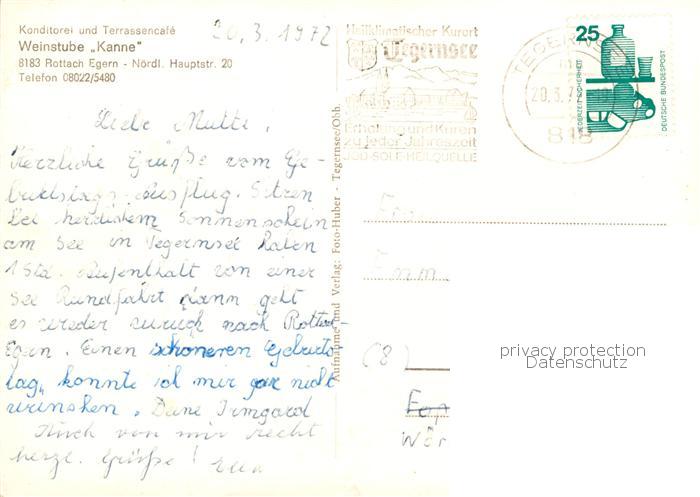 Konditorei und Terrassencafé
Weinstube „Kanne"
8183 Rottach Egern - Nördl. Hauptstr. 20
Telefon 08022/5480
20.3.1972
Heilklimatischer Kurort
Tegernsee
Erholung und Kuren
zu jeder Jahreszeit
JOD-SOLE-HEILQUELLE
TEGERNSEE
20.3.7
818
25
JEDERZEIT SICHERHEIT
DEUTSCHE BUNDESPOST
Liebe Mutti!
Herzliche Grüße vom Ge-
burtstags-Ausflug. Sitzen
bei herrlichem Sonnenschein
am See in Tegernsee haben
1 Std. Aufenthalt von einer
See Rundfahrt dann geht
es wieder zurück nach Rottach-
Egern. Einen schöneren Geburts-
tag konnte ich mir gar nicht
wünschen. Deine Irmgard
Auch von mir recht
herzl. Grüße!
Aufnahme und Verlag: Foto-Huber - Tegernsee/Obb.
Fr
Emm
(8)
Wör
privacy protection
Datenschutz